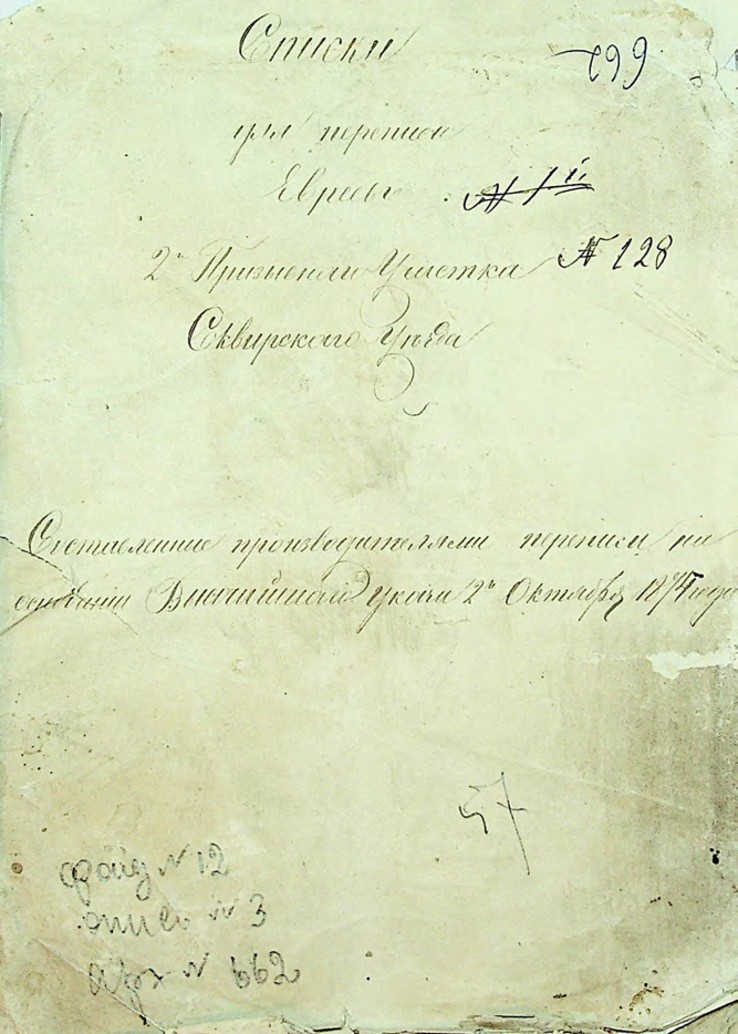 Списки
799
для переписи
Евреевъ
2го Призывнаго Участка № 128
Сквирскаго Уѣзда
Составленные производителями переписи на
основании Высочайшаго указа 2го Октября 1874 года
57
фонд № 12
опись № 3
арх № 662